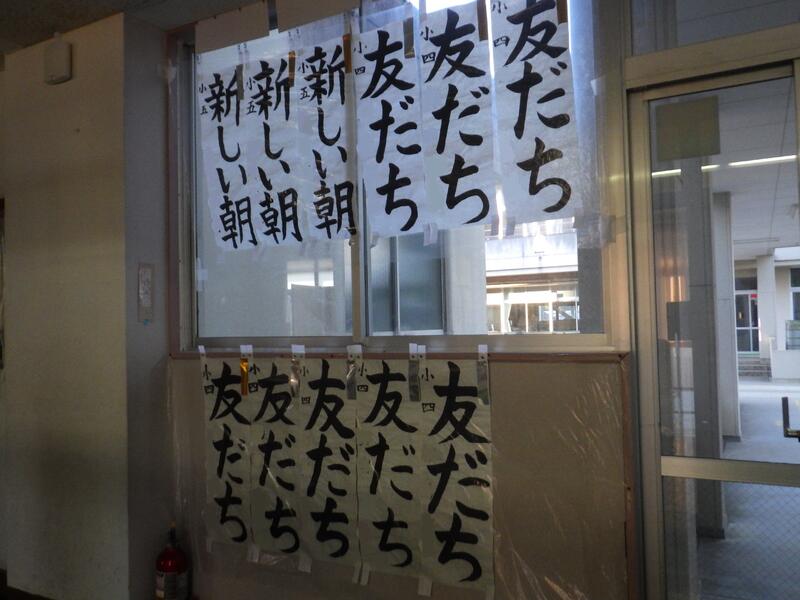 友だち
小四
友だち
小四
友だち
小四
新しい朝
小五
新しい朝
小五
新しい朝
小五
友だち
小四
友だち
小四
友だち
小四
友だち
小四
友だち
小四